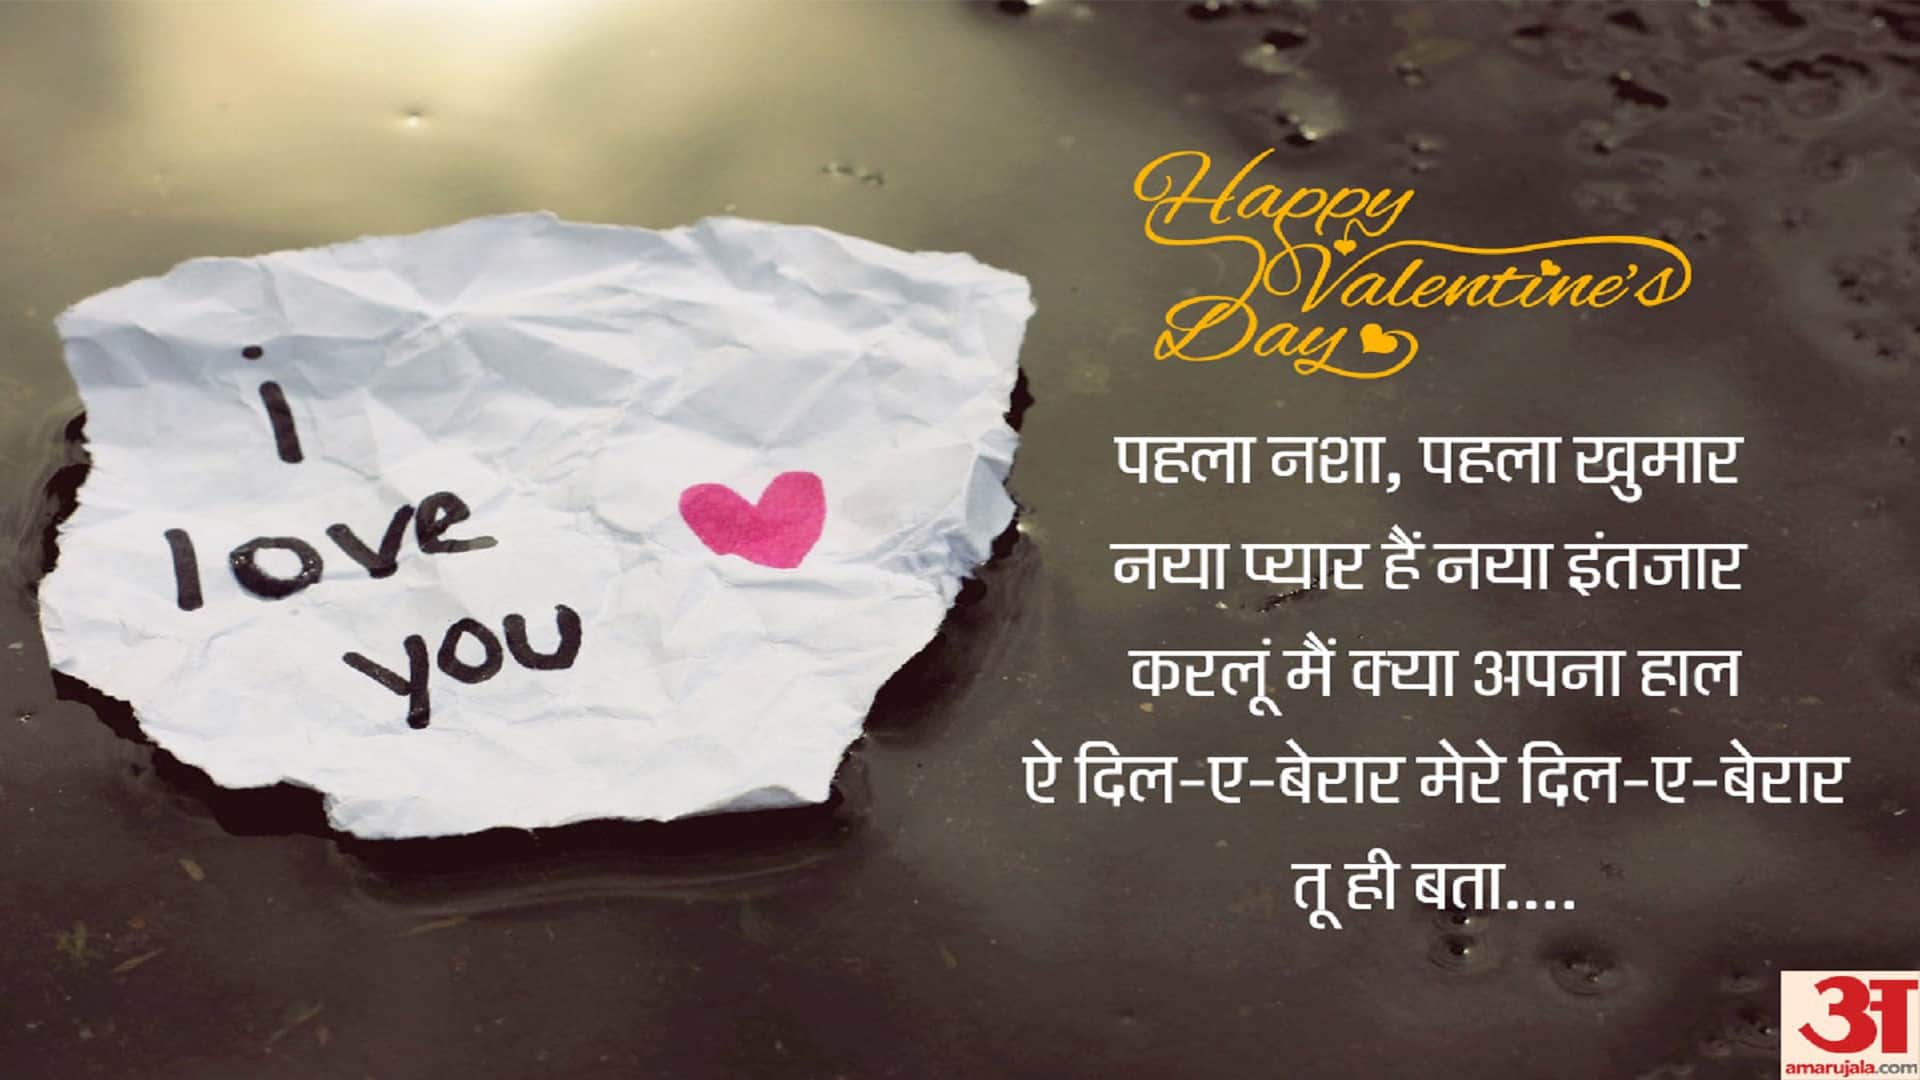 i
love
you
Happy
Valentine's
Day
पहला नशा, पहला खुमार
नया प्यार हैं नया इंतजार
करलूं मैं क्या अपना हाल
ऐ दिल-ए-बेरार मेरे दिल-ए-बेरार
तू ही बता....
अ
amarujala.com